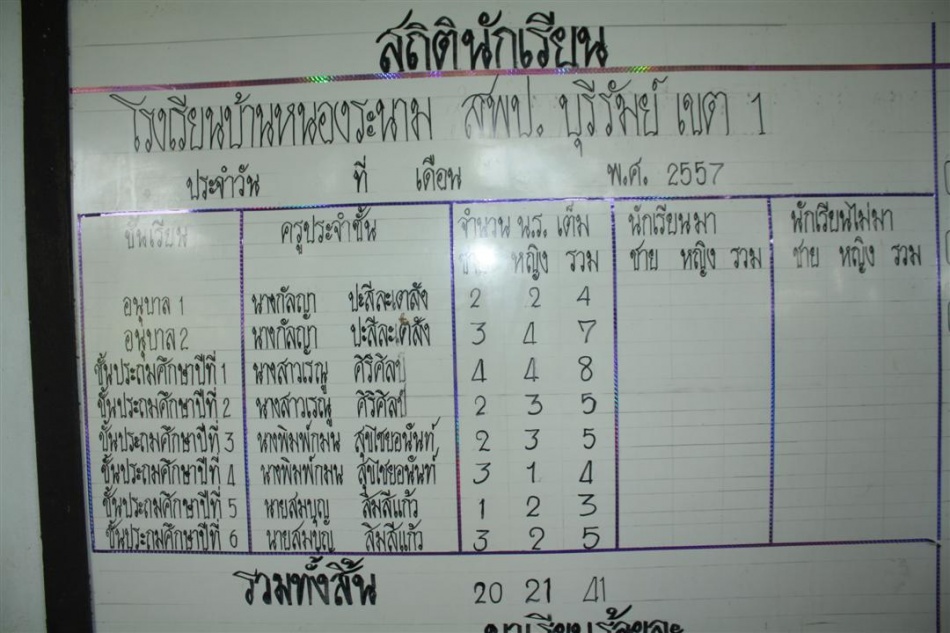 สถิตินักเรียน
โรงเรียนบ้านหนองระนาม สพป. บุรีรัมย์ เขต 1
ประจำวัน ที่ เดือน พ.ศ. 2557
ชั้นเรียน ครูประจำชั้น จำนวน น.ร. เต็ม นักเรียนมา นักเรียนไม่มา
ชาย หญิง รวม ชาย หญิง รวม ชาย หญิง รวม
อนุบาล 1 นางกัลญา ปะสีละเตสัง 2 2 4
อนุบาล 2 นางกัลญา ปะสีละเตสัง 3 4 7
ชั้นประถมศึกษาปีที่ 1 นางสาวเรณู ศิริศิลป์ 4 4 8
ชั้นประถมศึกษาปีที่ 2 นางสาวเรณู ศิริศิลป์ 2 3 5
ชั้นประถมศึกษาปีที่ 3 นางพิมพ์กมน สุขไชยอนันท์ 2 3 5
ชั้นประถมศึกษาปีที่ 4 นางพิมพ์กมน สุขไชยอนันท์ 3 1 4
ชั้นประถมศึกษาปีที่ 5 นายสมบุญ สิมสีแก้ว 1 2 3
ชั้นประถมศึกษาปีที่ 6 นายสมบุญ สิมสีแก้ว 3 2 5
รวมทั้งสิ้น 20 21 41
มาเรียนร้อยละ